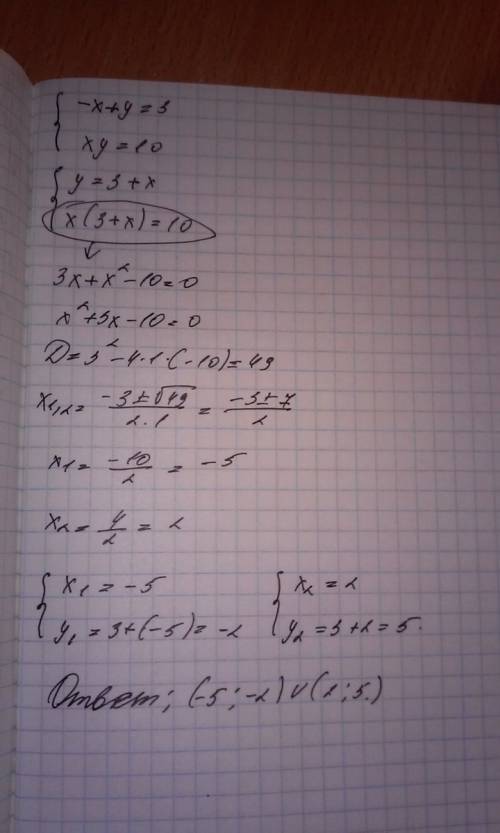 { -x+y=3
xy=10
{ y=3+x
x(3+x)=10
3x+x²-10=0
x²+3x-10=0
D=3²-4·1·(-10)=49
x1,2= (-3±√49)/(2·1) = (-3±7)/2
x1= -10/2 = -5
x2= 4/2 = 2
{ x1=-5 { x2=2
y1=3+(-5)=-2 y2=3+2=5.
Ответ; (-5;-2)∨(2;5.)